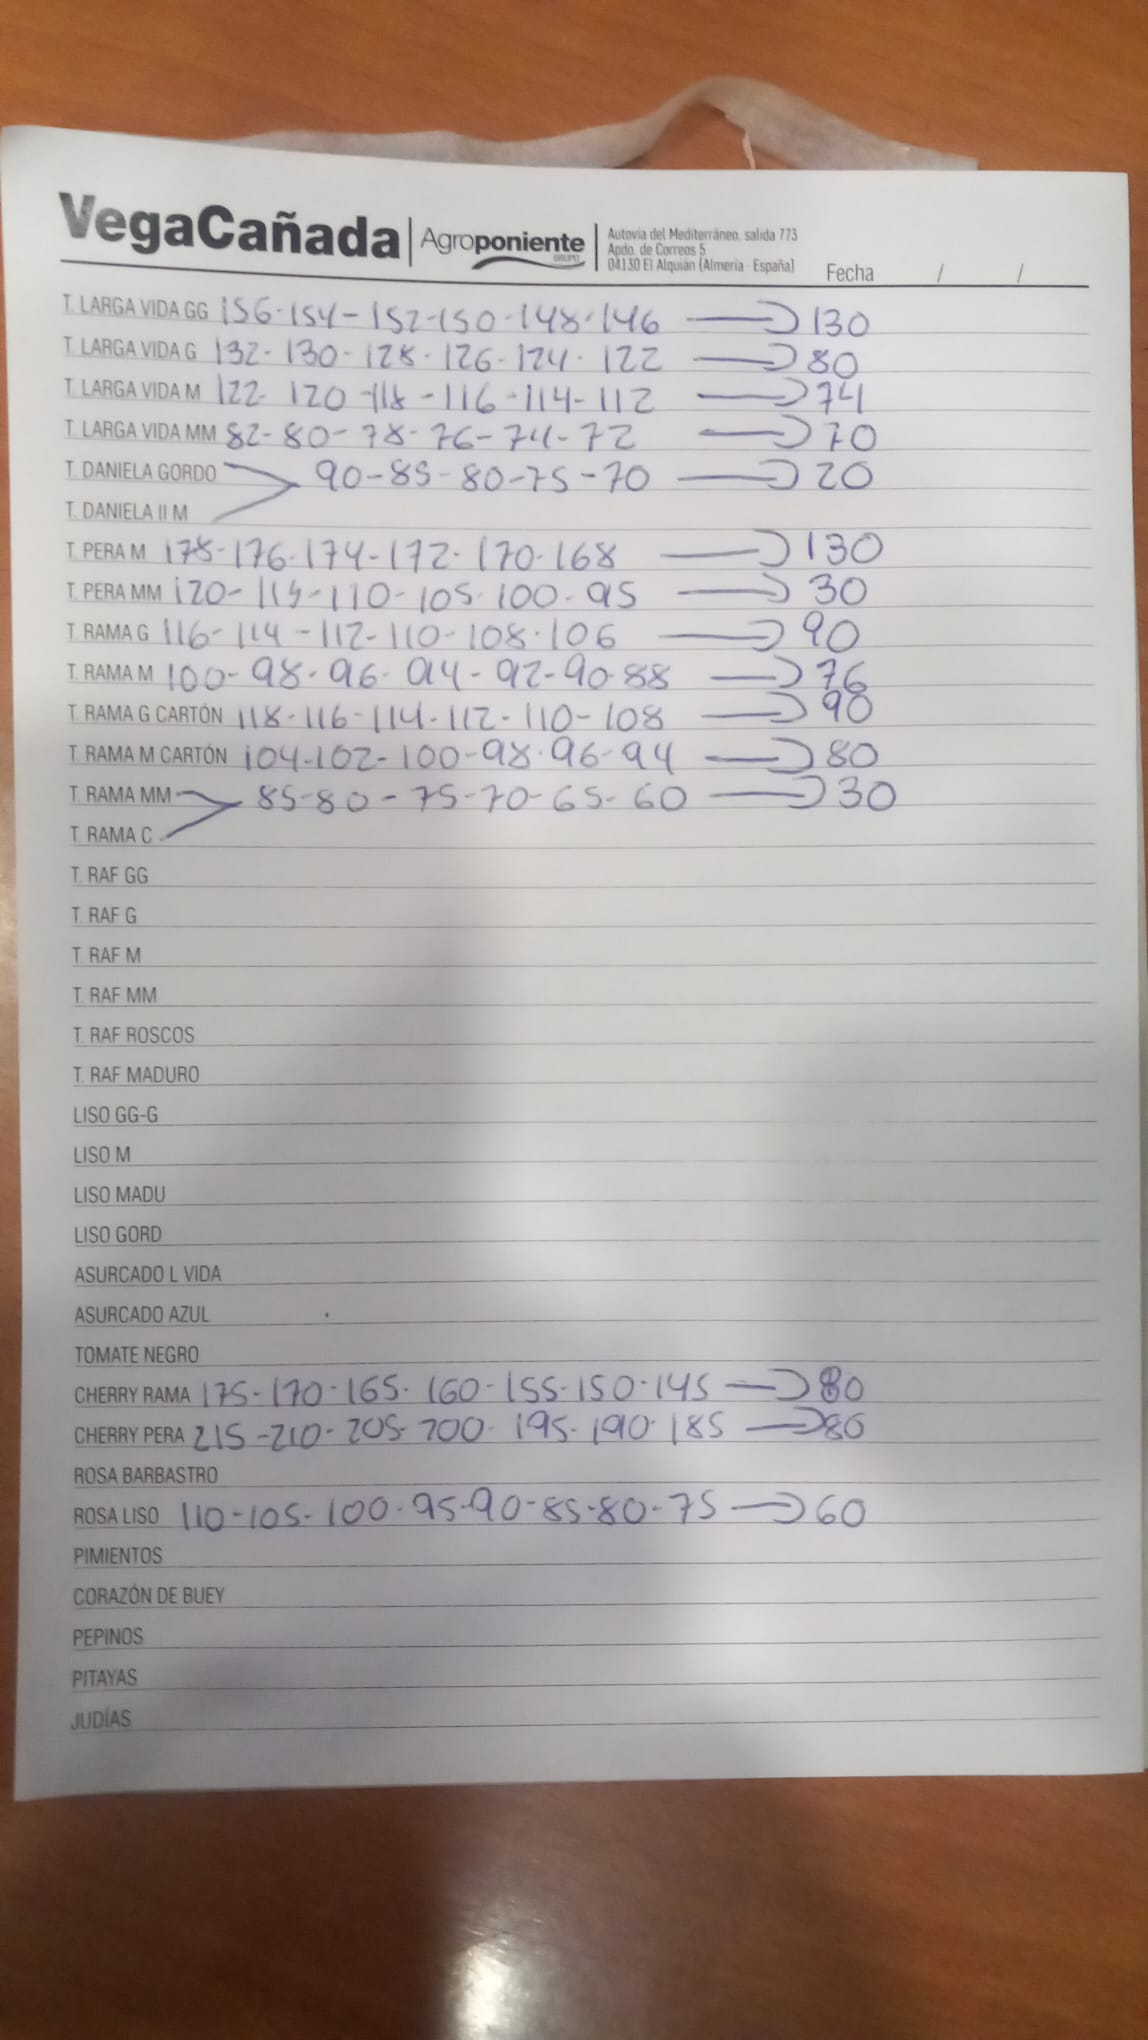 VegaCañada | Agroponiente GRUPO
Autovía del Mediterráneo, salida 773
Apdo. de Correos 5
04130 El Alquián (Almería - España)
Fecha / /
T. LARGA VIDA GG 156-154-152-150-148-146 → 130
T. LARGA VIDA G 132-130-128-126-124-122 → 80
T. LARGA VIDA M 122-120-118-116-114-112 → 74
T. LARGA VIDA MM 82-80-78-76-74-72 → 70
T. DANIELA GORDO 90-85-80-75-70 → 20
T. DANIELA II M
T. PERA M 178-176-174-172-170-168 → 130
T. PERA MM 120-115-110-105-100-95 → 30
T. RAMA G 116-114-112-110-108-106 → 90
T. RAMA M 100-98-96-94-92-90-88 → 76
T. RAMA G CARTÓN 118-116-114-112-110-108 → 90
T. RAMA M CARTÓN 104-102-100-98-96-94 → 80
T. RAMA MM 85-80-75-70-65-60 → 30
T. RAMA C
T. RAF GG
T. RAF G
T. RAF M
T. RAF MM
T. RAF ROSCOS
T. RAF MADURO
LISO GG-G
LISO M
LISO MADU
LISO GORD
ASURCADO L VIDA
ASURCADO AZUL
TOMATE NEGRO
CHERRY RAMA 175-170-165-160-155-150-145 → 80
CHERRY PERA 215-210-205-200-195-190-185 → 80
ROSA BARBASTRO
ROSA LISO 110-105-100-95-90-85-80-75 → 60
PIMIENTOS
CORAZÓN DE BUEY
PEPINOS
PITAYAS
JUDÍAS